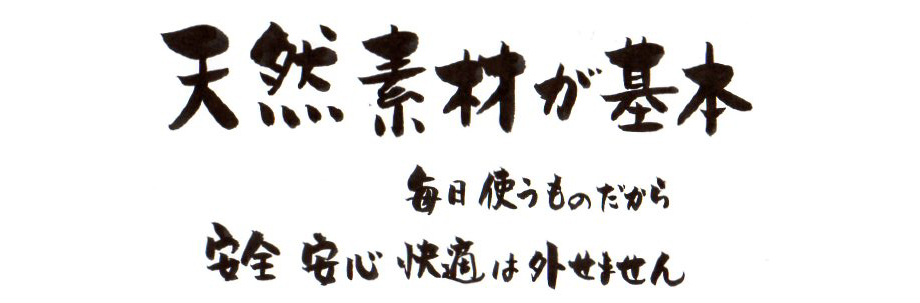 天然素材が基本
毎日使うものだから
安全 安心 快適は外せません